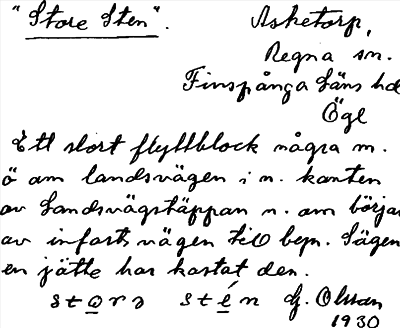 "Store Sten".
Asketorp,
Regna sn.
Finspånga läns hd
Ögl
Ett stort flyttblock några m.
ö om landsvägen i n. kanten
av Landsvägstäppan n. om början
av infartsvägen till bepn. Sägen
en jätte har kastat den.
stọrə stẹ́n G. Olsson
1930